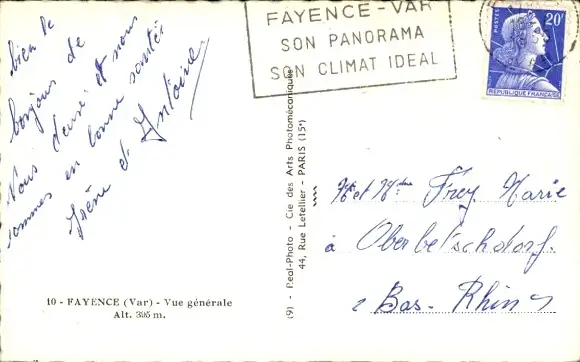 bien le
bonjour de
Nous deux, et nous
sommes en bonne santé
Irène et Antoine
10 - FAYENCE (Var) - Vue générale
Alt. 395 m.
FAYENCE - VAR
SON PANORAMA
SON CLIMAT IDEAL
POSTES
20F
REPUBLIQUE FRANÇAISE
(9) - Real-Photo - Cie des Arts Photomécaniques
44, Rue Letellier - PARIS (15e)
Mr et Mme Frey Marie
à Oberbetschdorf
Bas-Rhin